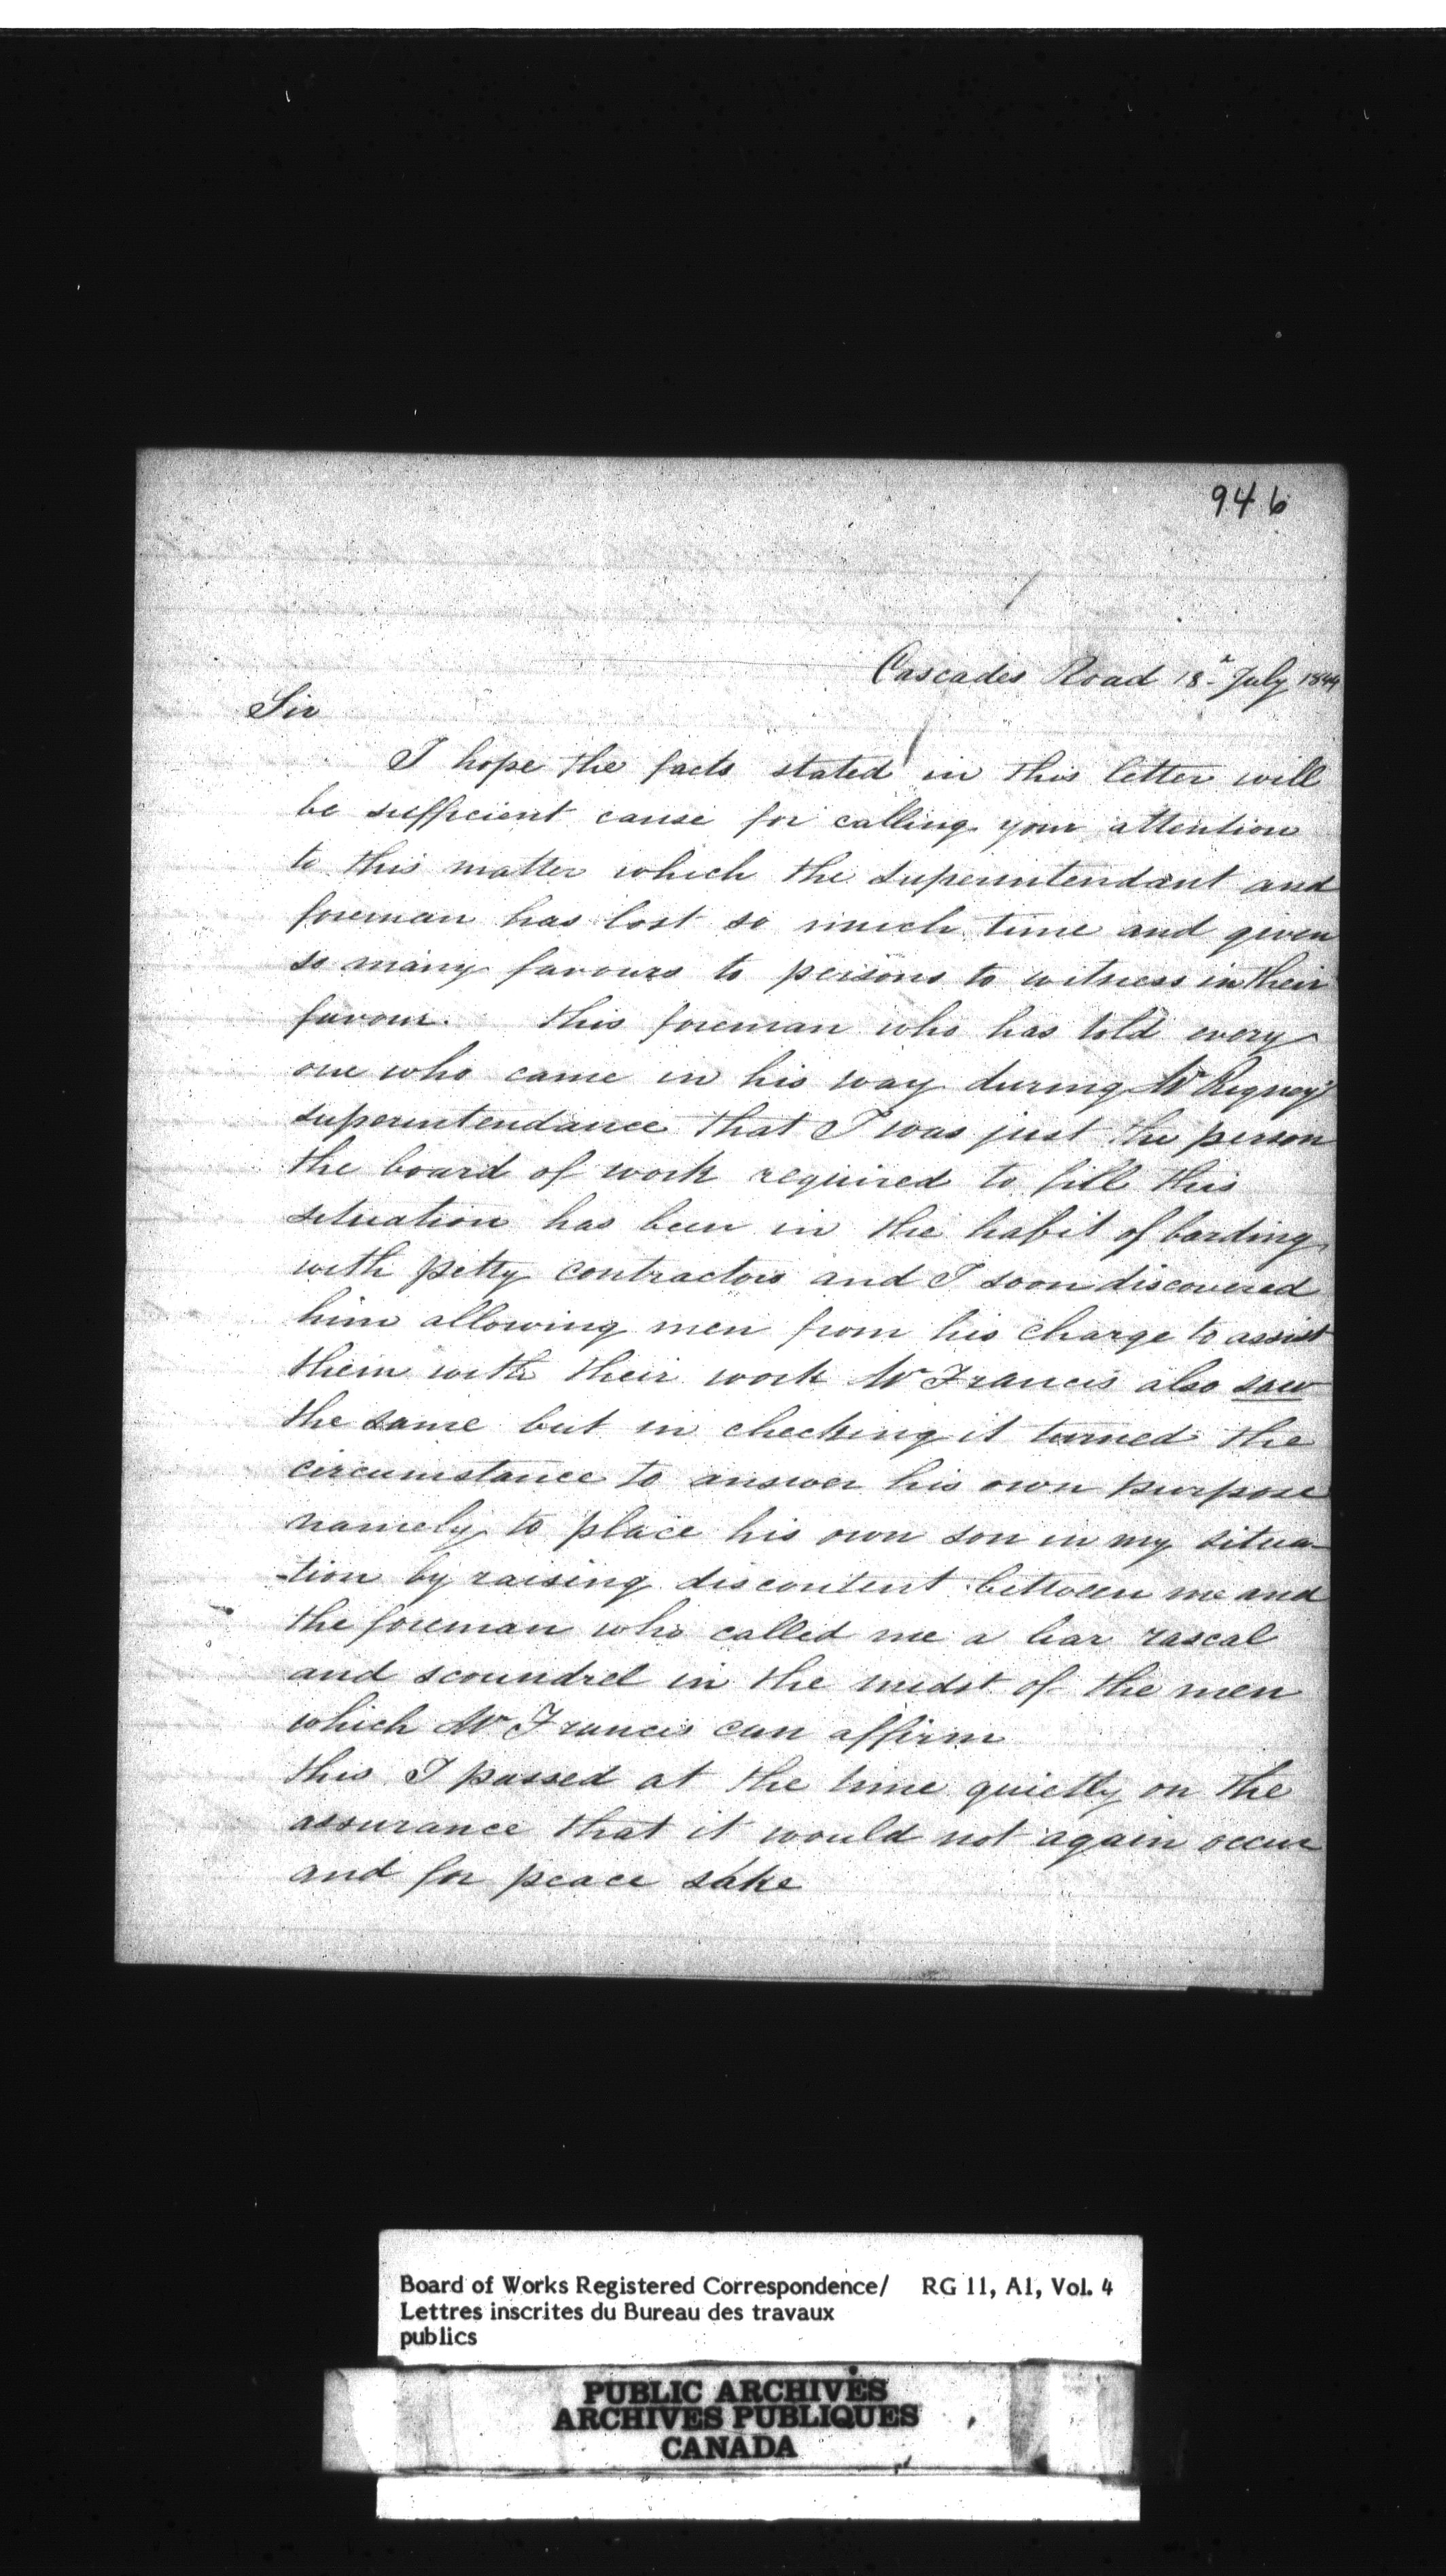 946
Cascades Road 18th July 1844
Sir
I hope the facts stated in this letter will
be sufficient cause for calling your attention
to this matter which the superintendant and
foreman has lost so much time and given
so many favours to persons to witness in their
favour. this foreman who has told every
one who came in his way during Mr Rigney's
superintendance that I was just the person
the board of work required to fill this
situation has been in the habit of bording
with petty contractors and I soon discovered
him allowing men from his charge to assist
them with their work Mr Francis also saw
the same but in checking it turned the
circumstance to answer his own purpose
namely to place his own son in my situa-
-tion by raising discontent between me and
the foreman who called me a liar rascal
and scoundrel in the midst of the men
which Mr Francis can affirm
this I passed at the time quietly on the
assurance that it would not again occur
and for peace sake
Board of Works Registered Correspondence/ RG 11, A1, Vol. 4
Lettres inscrites du Bureau des travaux
publics
PUBLIC ARCHIVES
ARCHIVES PUBLIQUES
CANADA